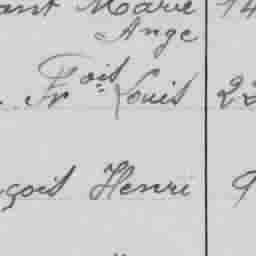 ant Marie 14
Ange
Fr.ois Louis 22
çois Henri 9